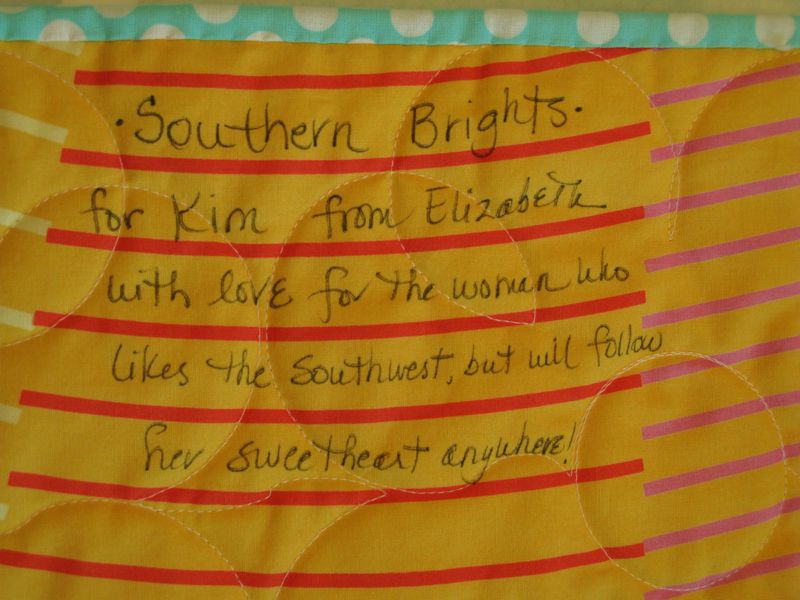 ·Southern Brights·
for Kim from Elizabeth
with love for the woman who
likes the Southwest, but will follow
her sweetheart anywhere!